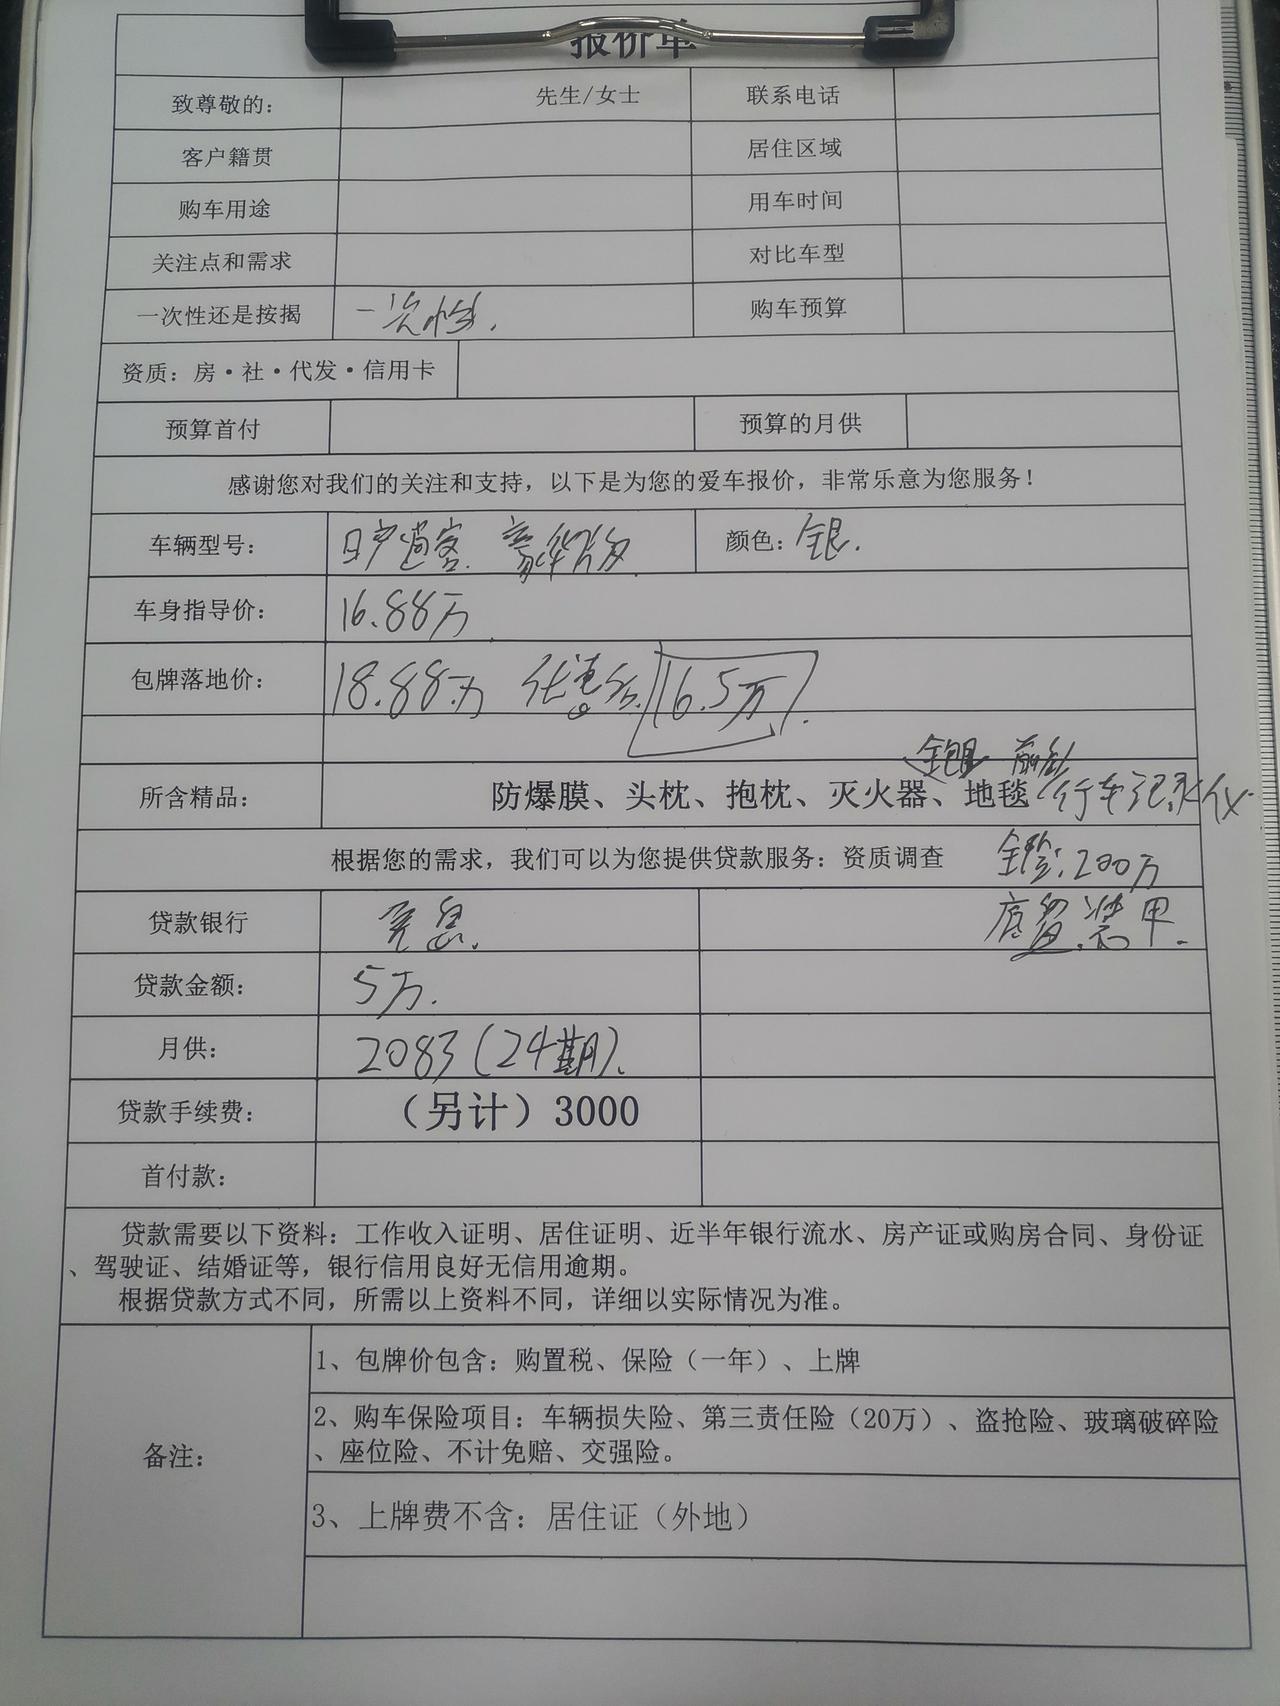 报价单
致尊敬的： 先生/女士 联系电话
客户籍贯 居住区域
购车用途 用车时间
关注点和需求 对比车型
一次性还是按揭 一次性. 购车预算
资质：房·社·代发·信用卡
预算首付 预算的月供
感谢您对我们的关注和支持，以下是为您的爱车报价，非常乐意为您服务！
车辆型号： 日产逍客. 豪华版 颜色：银.
车身指导价： 16.88万
包牌落地价： 18.88万 优惠后 16.5万.
全包围 前后
所含精品： 防爆膜、头枕、抱枕、灭火器、地毯 行车记录仪.
根据您的需求，我们可以为您提供贷款服务：资质调查 全险:200万
贷款银行 免息. 底盘装甲.
贷款金额： 5万.
月供： 2083(24期).
贷款手续费： （另计）3000
首付款：
贷款需要以下资料：工作收入证明、居住证明、近半年银行流水、房产证或购房合同、身份证
、驾驶证、结婚证等，银行信用良好无信用逾期。
根据贷款方式不同，所需以上资料不同，详细以实际情况为准。
备注：
1、包牌价包含：购置税、保险（一年）、上牌
2、购车保险项目：车辆损失险、第三责任险（20万）、盗抢险、玻璃破碎险
、座位险、不计免赔、交强险。
3、上牌费不含：居住证（外地）